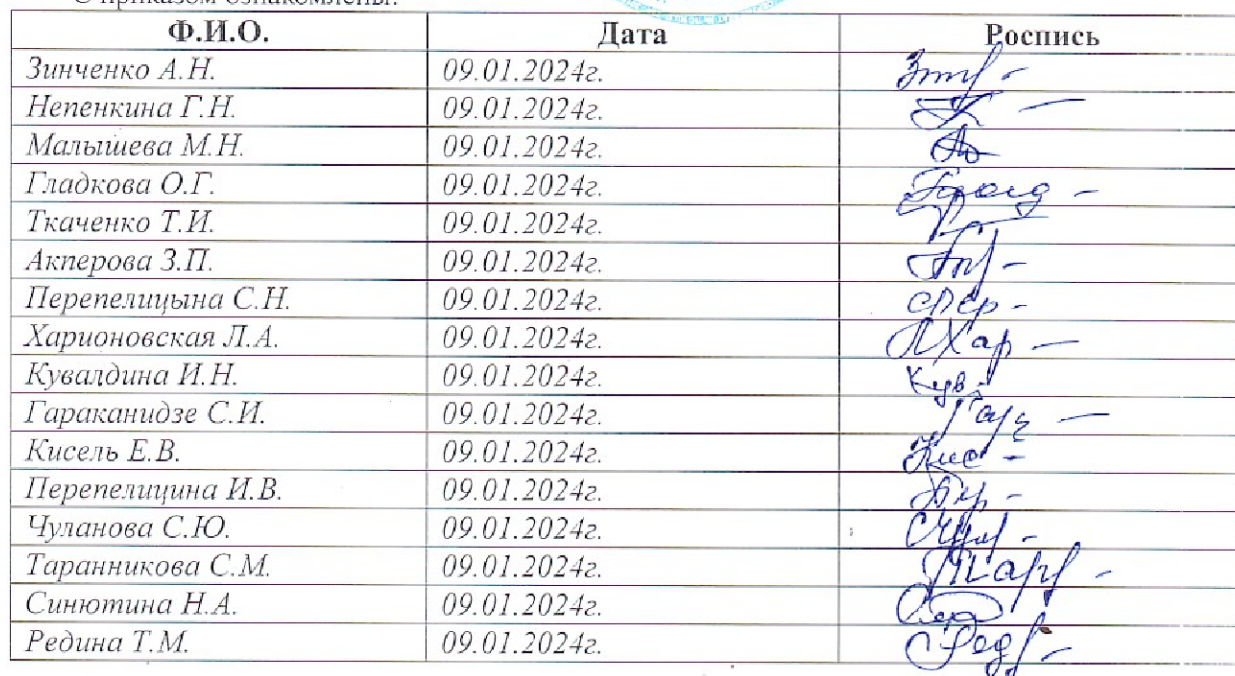 С приказом ознакомлены:
Ф.И.О. Дата Роспись
Зинченко А.Н. 09.01.2024г.
Непенкина Г.Н. 09.01.2024г.
Малышева М.Н. 09.01.2024г.
Гладкова О.Г. 09.01.2024г.
Ткаченко Т.И. 09.01.2024г.
Акперова З.П. 09.01.2024г.
Перепелицына С.Н. 09.01.2024г.
Харионовская Л.А. 09.01.2024г.
Кувалдина И.Н. 09.01.2024г. Кув
Гараканидзе С.И. 09.01.2024г.
Кисель Е.В. 09.01.2024г. Кис
Перепелицина И.В. 09.01.2024г.
Чуланова С.Ю. 09.01.2024г.
Таранникова С.М. 09.01.2024г.
Синютина Н.А. 09.01.2024г.
Редина Т.М. 09.01.2024г. Ред